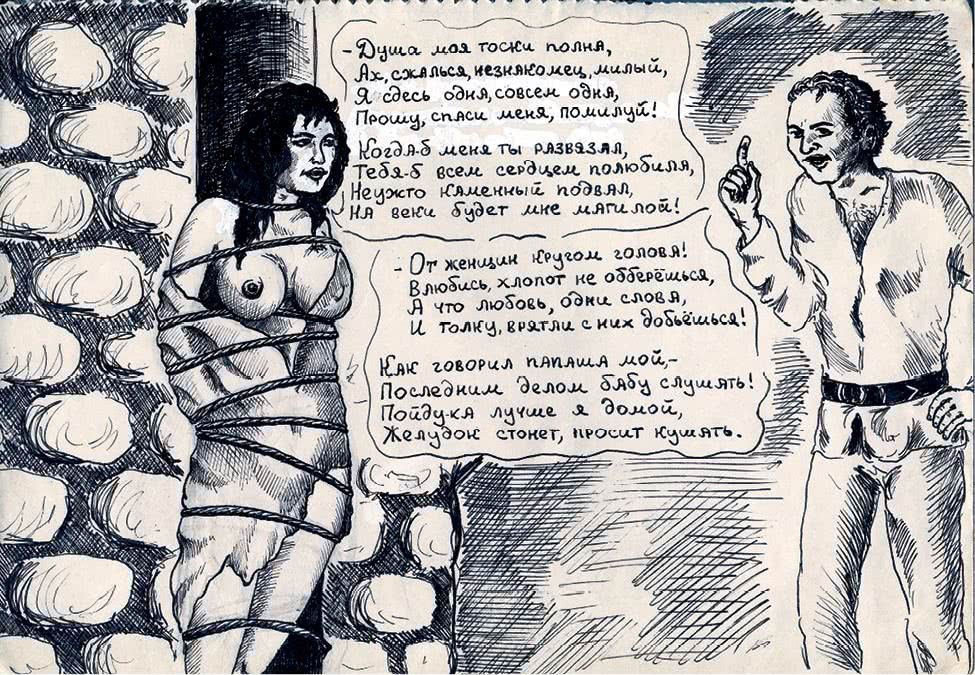 - Душа моя тоски полна,
Ах, сжалься, незнакомец, милый,
Я сдесь одна, совсем одна,
Прошу, спаси меня, помилуй!
Когда-б меня ты развязал,
Тебя-б всем сердцем полюбила,
Неужто каменный подвал,
На веки будет мне магилой!
- От женщин кругом голова!
Влюбись, хлопот не обберёшься,
А что любовь, одни слова,
И толку, врятли с них добьёшься!
Как говорил папаша мой,-
Последним делом бабу слушать!
Пойду-ка лучше я домой,
Желудок стонет, просит кушать.